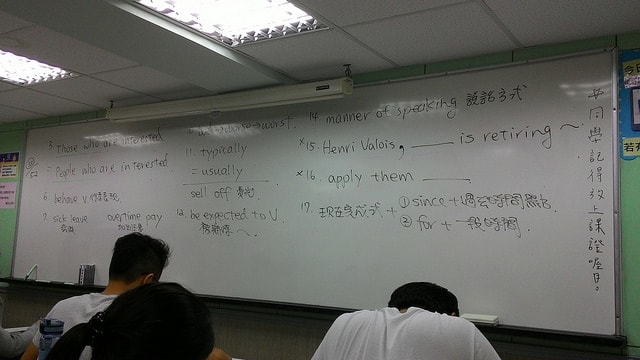 5. Those who are interested
= People who are interested
6. behave V. 行為表現
7. sick leave overtime pay
病假 加班費
worse worst.
11. typically
= usually
sell off 賣光
12. be expected to V.
被期待~.
14. manner of speaking 說話方式
*15. Henri Valois, ____ is retiring ~
*16. apply them ____
17. 現在完成式 + ① since + 過去時間點.
② for + 一段時間.
同學記得放上課證喔!